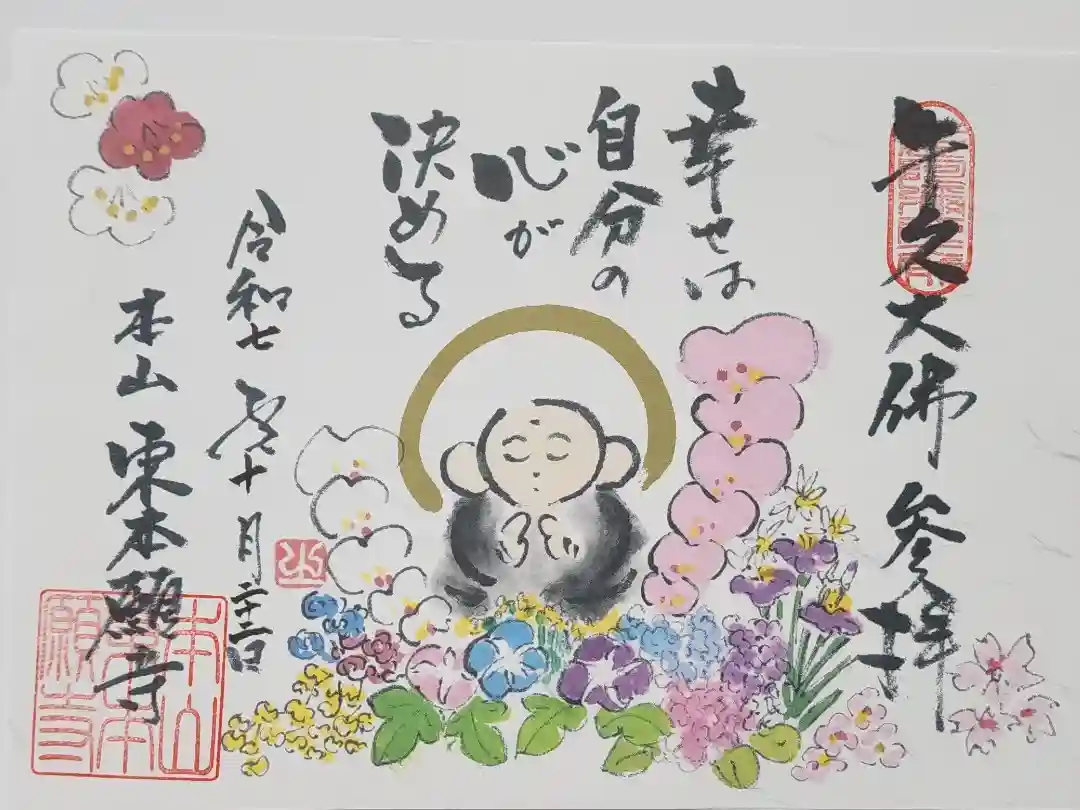 牛久大佛 参拝
幸せは
自分の
心が
決める
令和七年十月二十二日
本山 東本願寺
本山
東本
願寺